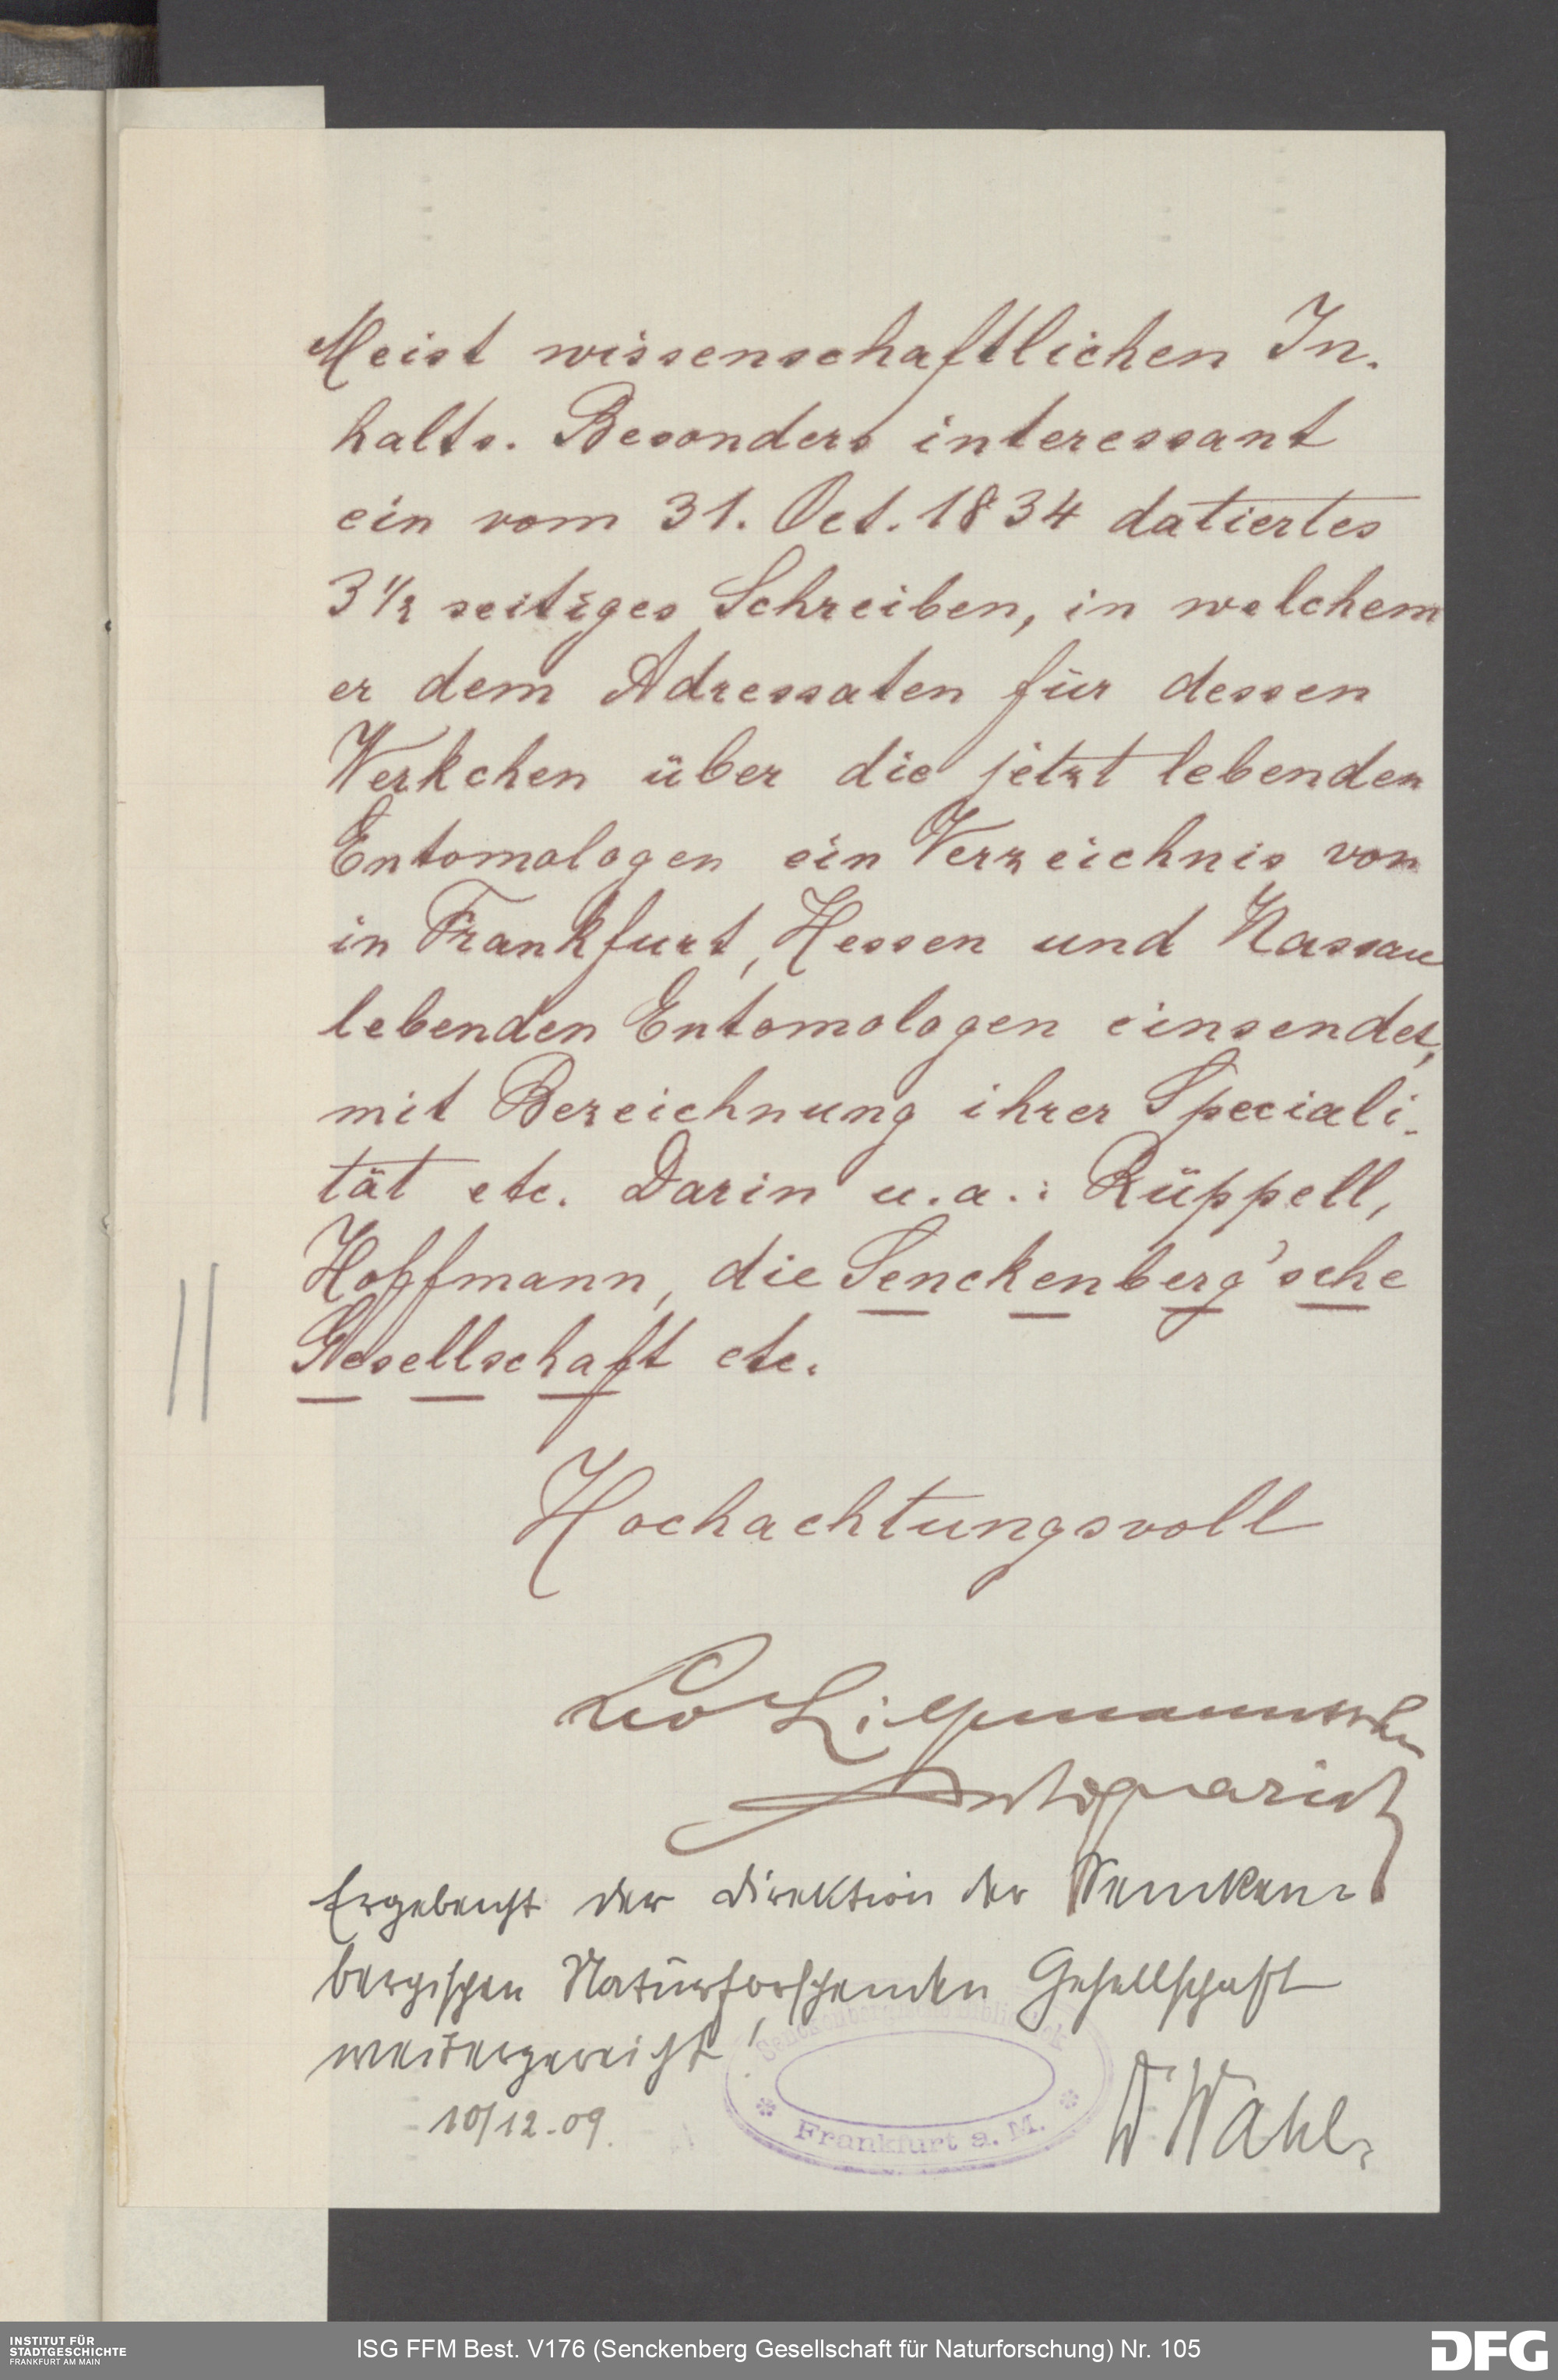 Meist wissenschaftlichen In-
halts. Besonders interessant
ein vom 31. Oct. 1834 datiertes
3 1/2 seitiges Schreiben, in welchem
er dem Adressaten für dessen
Werkchen über die jetzt lebenden
Entomologen ein Verzeichnis von
in Frankfurt, Hessen und Nassau
lebenden Entomologen einsendet,
mit Bezeichnung ihrer Speciali-
tät etc. Darin u.a.: Rüppell,
Hoffmann, die Senckenberg'sche
Gesellschaft etc.
Hochachtungsvoll
Leo Liepmannssohn
Antiquariat
Ergebenst der Direktion der Senken-
bergischen Naturforschenden Gesellschaft
weitergereicht
10/12.09.
Dr Wahl.
Senckenbergische Bibliothek
Frankfurt a. M.
INSTITUT FÜR
STADTGESCHICHTE
FRANKFURT AM MAIN
ISG FFM Best. V176 (Senckenberg Gesellschaft für Naturforschung) Nr. 105
DFG